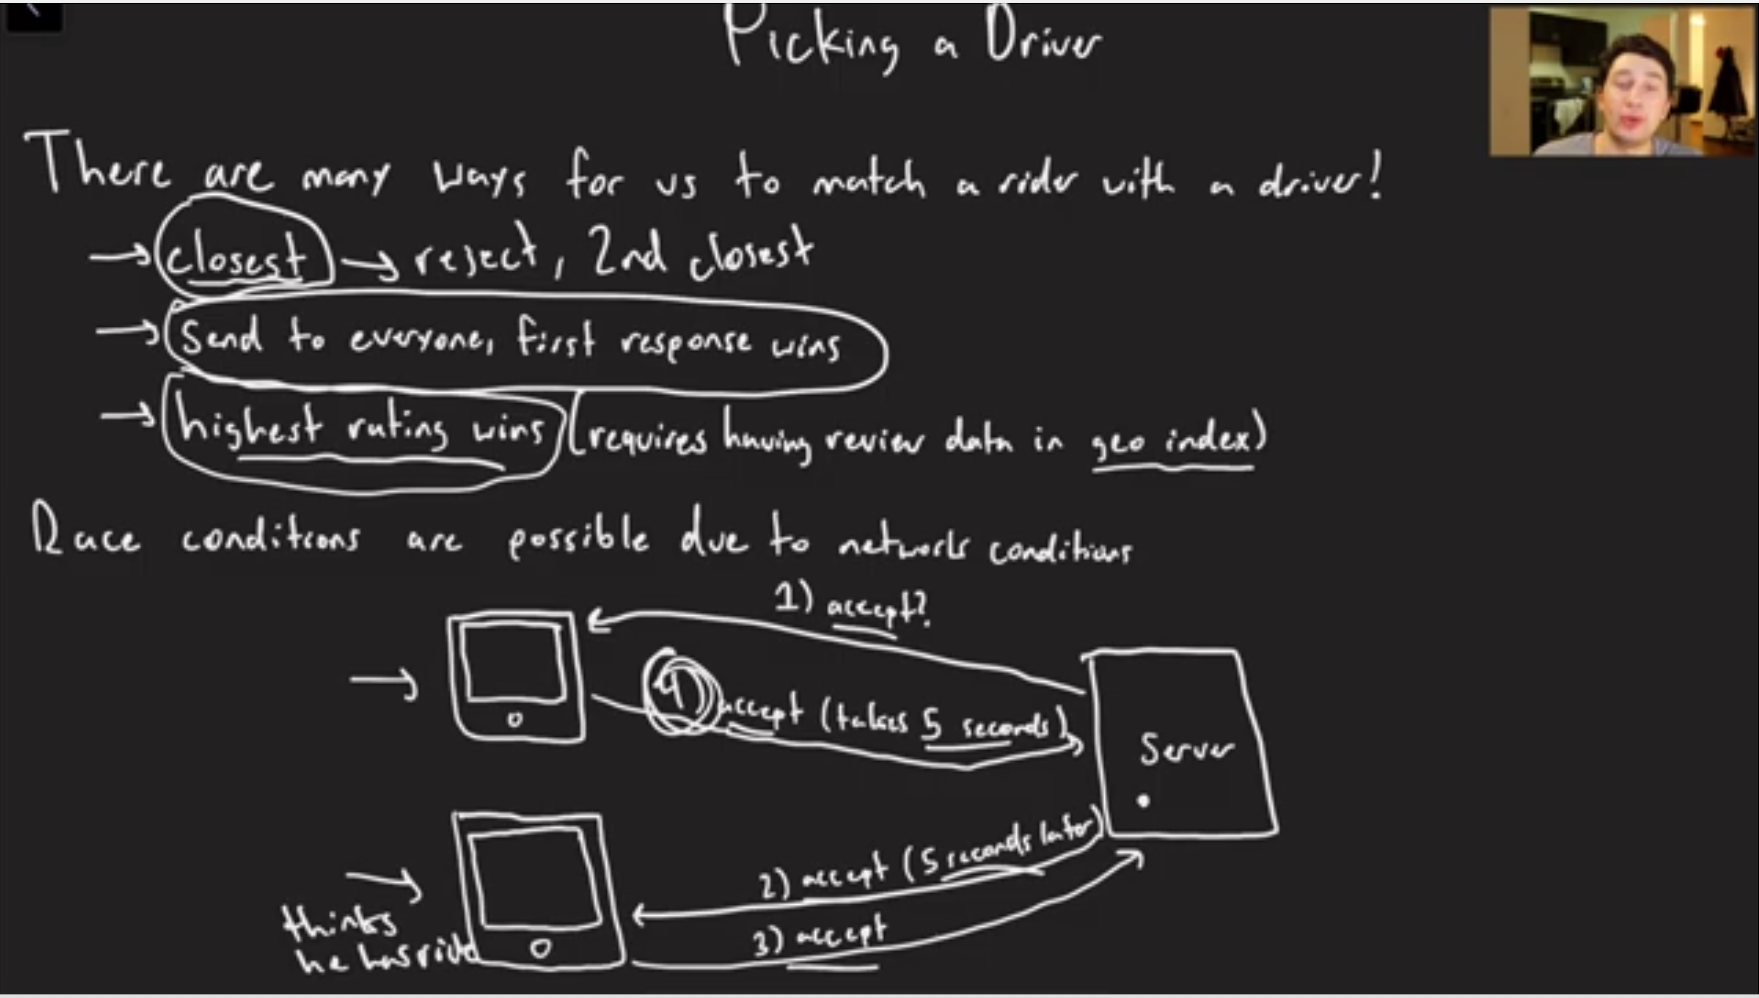 Picking a Driver
There are many ways for us to match a rider with a driver!
→ closest → reject, 2nd closest
→ Send to everyone, first response wins
→ highest rating wins (requires having review data in geo index)
Race conditions are possible due to network conditions
1) accept?
4) accept (takes 5 seconds)
Server
2) accept (5 seconds later)
3) accept
thinks
he has ride